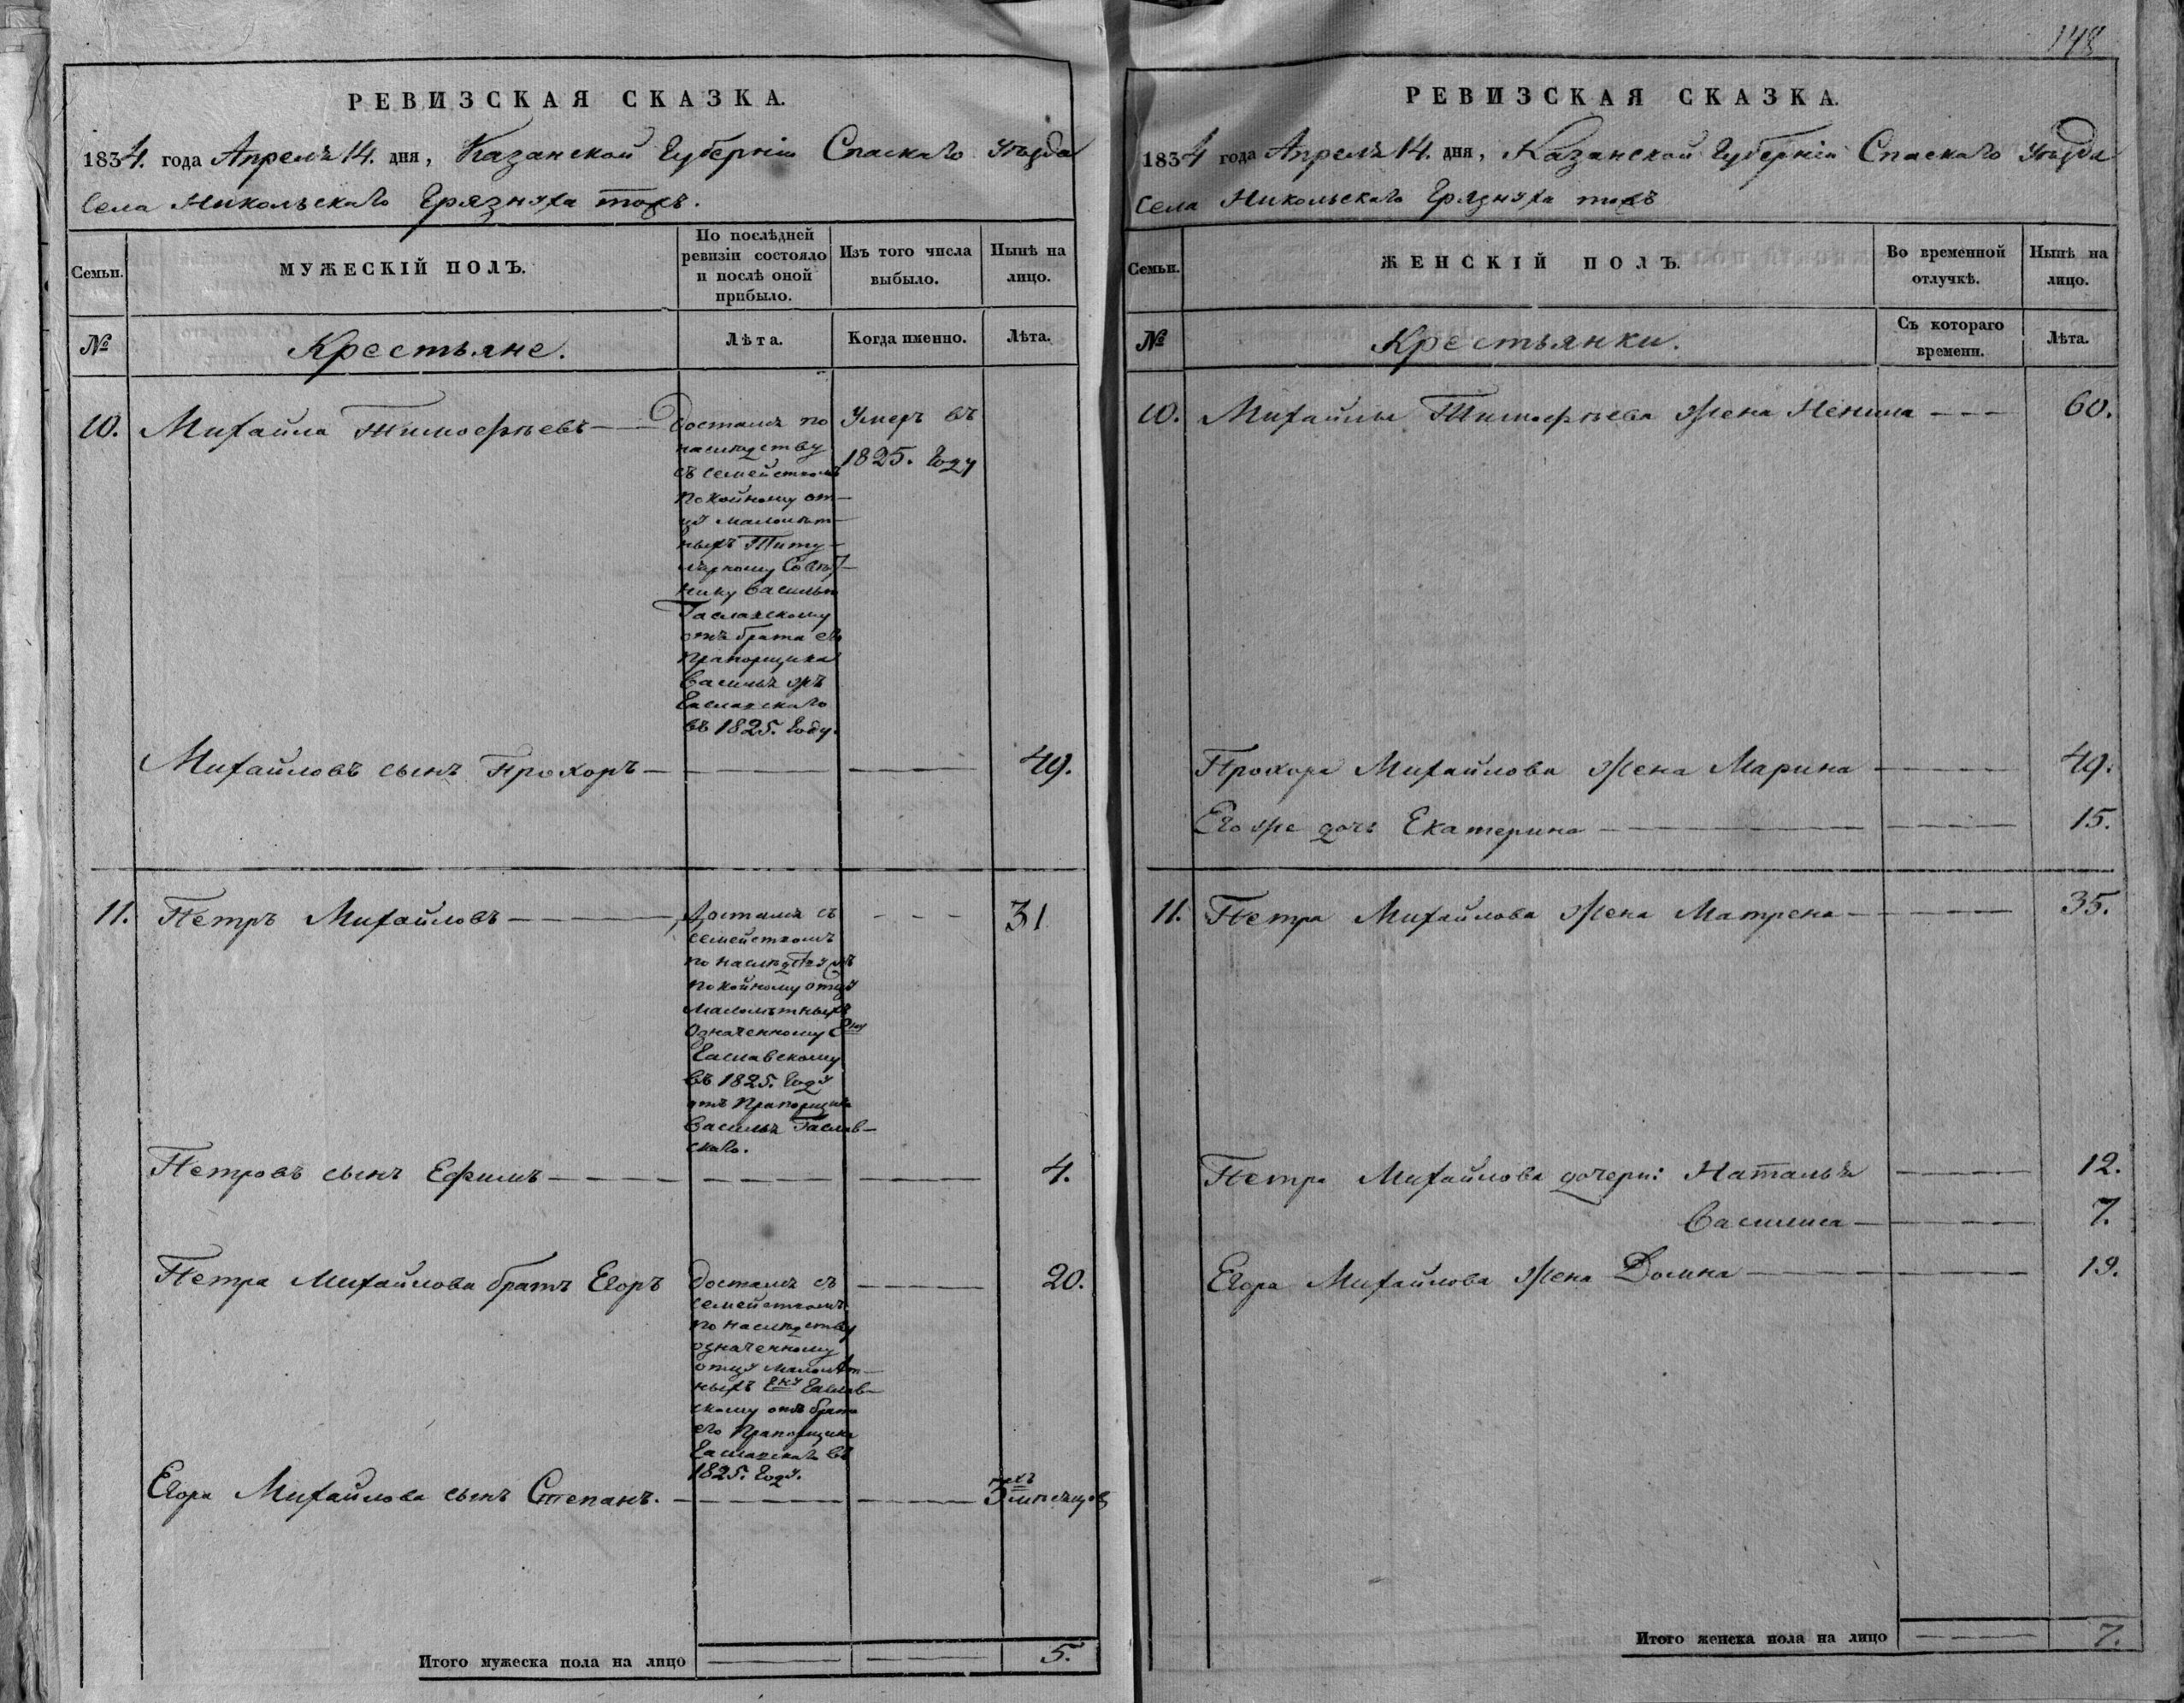 РЕВИЗСКАЯ СКАЗКА.
1834. года Апреля 14. дня, Казанской Губернии Спаскаго уѣзда
Села Никольскаго Грязнуха тожъ.
Семьи.
МУЖЕСКІЙ ПОЛЪ.
По послѣдней
ревизіи состояло
и послѣ оной
прибыло.
Изъ того числа
выбыло.
Нынѣ на
лицо.
№
Крестьяне.
Лѣта.
Когда именно.
Лѣта.
10. Михайла Тимофѣевъ
Достался по
наслѣдству
съ семействомъ
покойному от-
цу малолѣт-
ныхъ Титу-
лярному Совѣт-
нику Василью
отъ брата его
Прапорщика
Василья жъ
въ 1825. Году.
Умеръ въ
1825. Году
Михайловъ сынъ Прохоръ 49.
11. Петръ Михайловъ 31
Достался съ
семействомъ
по наслѣдству жъ
покойному отцу
малолѣтныхъ
Означенному Г-ну
Гаславскому
въ 1825. Году
отъ Прапорщика
Василья Гаслав-
скаго.
Петровъ сынъ Ефимъ 4.
Петра Михайлова братъ Егоръ 20.
Достался съ
семействомъ
по наслѣдству
означенному
отцу малолѣт-
ныхъ Г-ну Гаслав-
скому отъ брата
его Прапорщика
Гаславскаго въ
1825. Году.
Егора Михайлова сынъ Степанъ. 3-хъ мѣсяцов
Итого мужеска пола на лицо 5.
148
РЕВИЗСКАЯ СКАЗКА.
1834 года Апреля 14. дня, Казанской Губерніи Спаскаго Уѣзда
Села Никольскаго Грязнуха тожъ
Семьи.
ЖЕНСКІЙ ПОЛЪ.
Во временной
отлучкѣ.
Нынѣ на
лицо.
№
Крестьянки.
Съ котораго
времени.
Лѣта.
10. Михайлы Тимофѣева жена Ненила 60.
Прохора Михайлова жена Марина 49.
Его же дочь Екатерина 15.
11. Петра Михайлова жена Матрена 35.
Петра Михайлова дочери: Наталья 12.
Василиса 7.
Егора Михайлова жена Домна 19.
Итого женска пола на лицо 7.